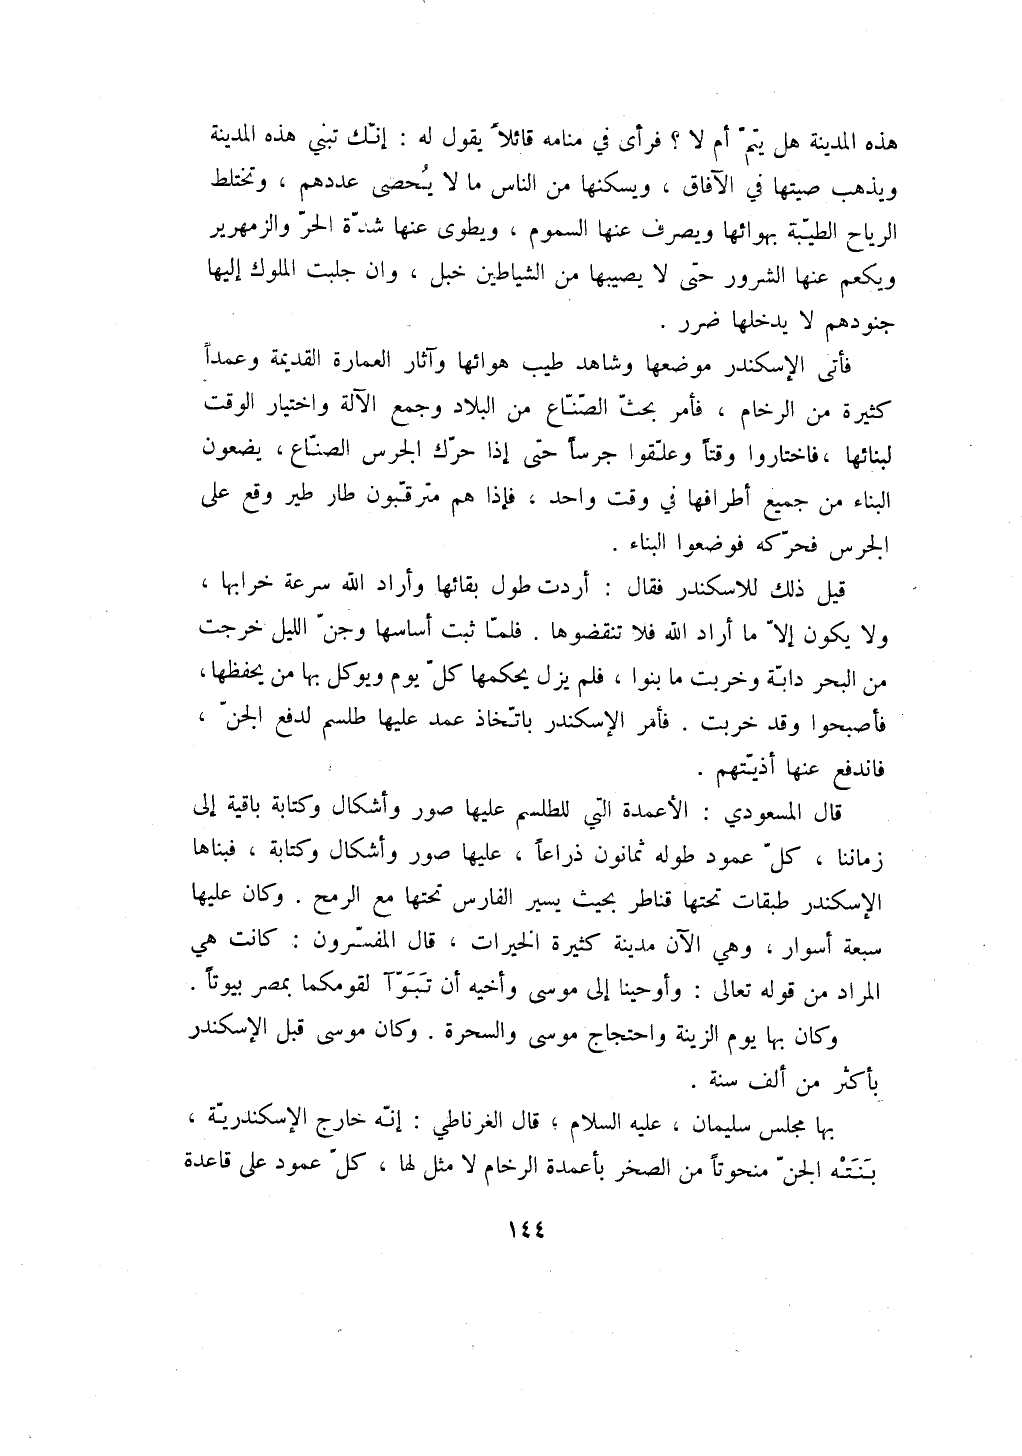 هذه المدينة هل يتمّ أم لا ؟ فرأى في منامه قائلاً يقول له : إنّك تبني هذه المدينة
ويذهب صيتها في الآفاق ، ويسكنها من الناس ما لا يُحصى عددهم ، وتختلط
الرياح الطيّبة بهوائها ويصرف عنها السموم ، ويطوى عنها شدّة الحرّ والزمهرير
ويكعم عنها الشرور حتّى لا يصيبها من الشياطين خبل ، وان جلبت الملوك إليها
جنودهم لا يدخلها ضرر .
فأتى الإسكندر موضعها وشاهد طيب هوائها وآثار العمارة القديمة وعمداً
كثيرة من الرخام ، فأمر بحثّ الصّنّاع من البلاد وجمع الآلة واختيار الوقت
لبنائها ، فاختاروا وقتاً وعلّقوا جرساً حتّى إذا حرّك الجرس الصنّاع ، يضعون
البناء من جميع أطرافها في وقت واحد ، فإذا هم مترقّبون طار طير وقع على
الجرس فحرّكه فوضعوا البناء .
قيل ذلك للاسكندر فقال : أردت طول بقائها وأراد الله سرعة خرابها ،
ولا يكون إلاّ ما أراد الله فلا تنقضوها . فلمّا ثبت أساسها وجنّ الليل خرجت
من البحر دابّة وخربت ما بنوا ، فلم يزل يحكمها كلّ يوم ويوكل بها من يحفظها،
فأصبحوا وقد خربت . فأمر الإسكندر باتّخاذ عمد عليها طلسم لدفع الجنّ ،
فاندفع عنها أذيّتهم .
قال المسعودي : الأعمدة التي للطلسم عليها صور وأشكال وكتابة باقية إلى
زماننا ، كلّ عمود طوله ثمانون ذراعاً ، عليها صور وأشكال وكتابة ، فبناها
الإسكندر طبقات تحتها قناطر بحيث يسير الفارس تحتها مع الرمح . وكان عليها
سبعة أسوار ، وهي الآن مدينة كثيرة الخيرات ، قال المفسّرون : كانت هي
المراد من قوله تعالى : وأوحينا إلى موسى وأخيه أن تَبَوّآ لقومكما بمصر بيوتاً .
وكان بها يوم الزينة واحتجاج موسى والسحرة . وكان موسى قبل الإسكندر
بأكثر من ألف سنة .
بها مجلس سليمان ، عليه السلام ؛ قال الغرناطي : إنّه خارج الإسكندريّة ،
بَنَتْه الجنّ منحوتاً من الصخر بأعمدة الرخام لا مثل لها ، كلّ عمود على قاعدة
١٤٤